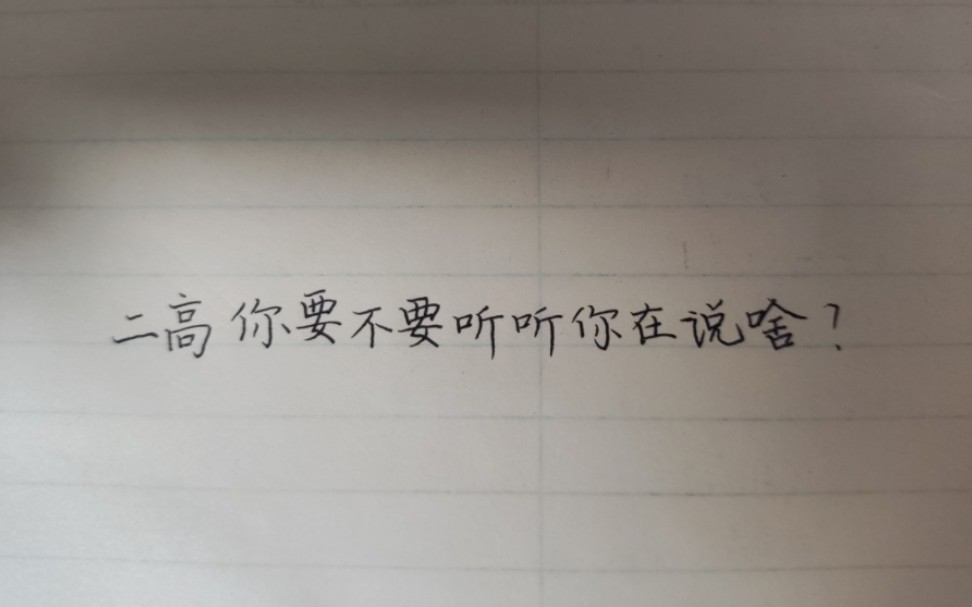 二高你要不要听听你在说啥？